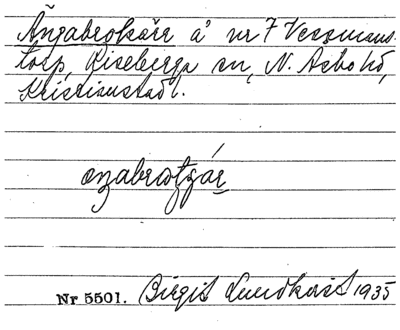 Ängabrokärr å nr 7 Vessmans-
torp, Riseberga sn, N. Åsbo hd,
Kristianstad l.
Nr 5501. Birgit Lundkvist 1935